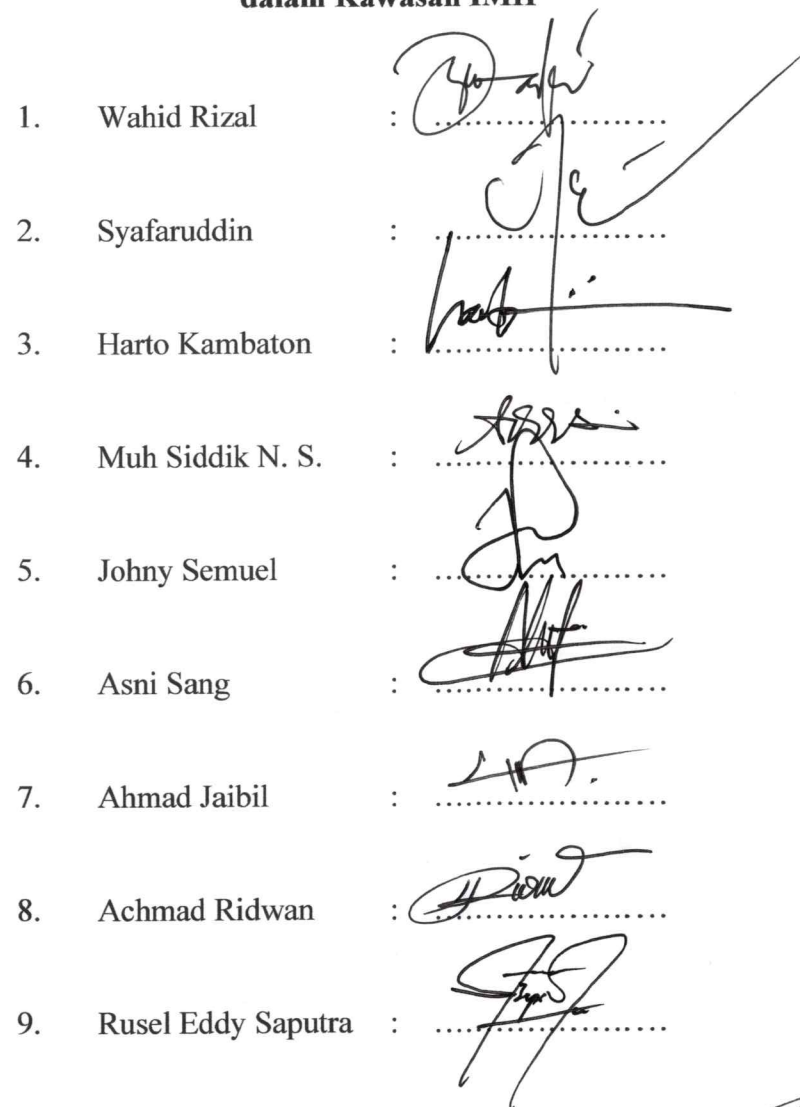 dalam Kawasan IMIP
1. Wahid Rizal : ........................
2. Syafaruddin : ........................
3. Harto Kambaton : ........................
4. Muh Siddik N. S. : ........................
5. Johny Semuel : ........................
6. Asni Sang : ........................
7. Ahmad Jaibil : ........................
8. Achmad Ridwan : ........................
9. Rusel Eddy Saputra : ........................